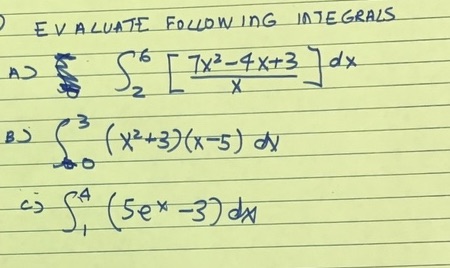 EVALUATE FOLLOWING INTEGRALS
A) ∫₂⁶ [ (7x²-4x+3)/x ] dx
B) ∫₀³ (x²+3)(x-5) dx
C) ∫₁⁴ (5eˣ-3) dx